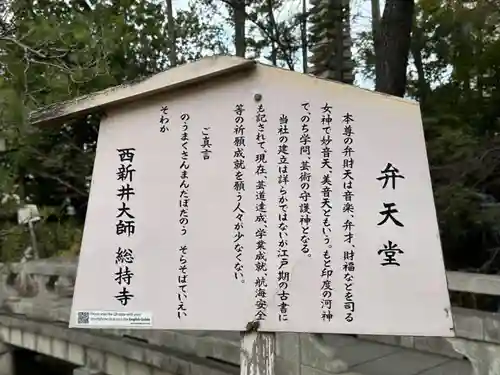 弁天堂
本尊の弁財天は音楽、弁才、財福などを司る
女神で妙音天、美音天ともいう。もと印度の河神
で、のち学問、芸術の守護神となる。
当社の建立は詳らかではないが江戸期の古書に
も記されて、現在、芸道達成、学業成就、航海安全
等の祈願成就を願う人々が少なくない。
ご真言
のうまくさんまんたぼだのう そらそばていえい
そわか
西新井大師 總持寺